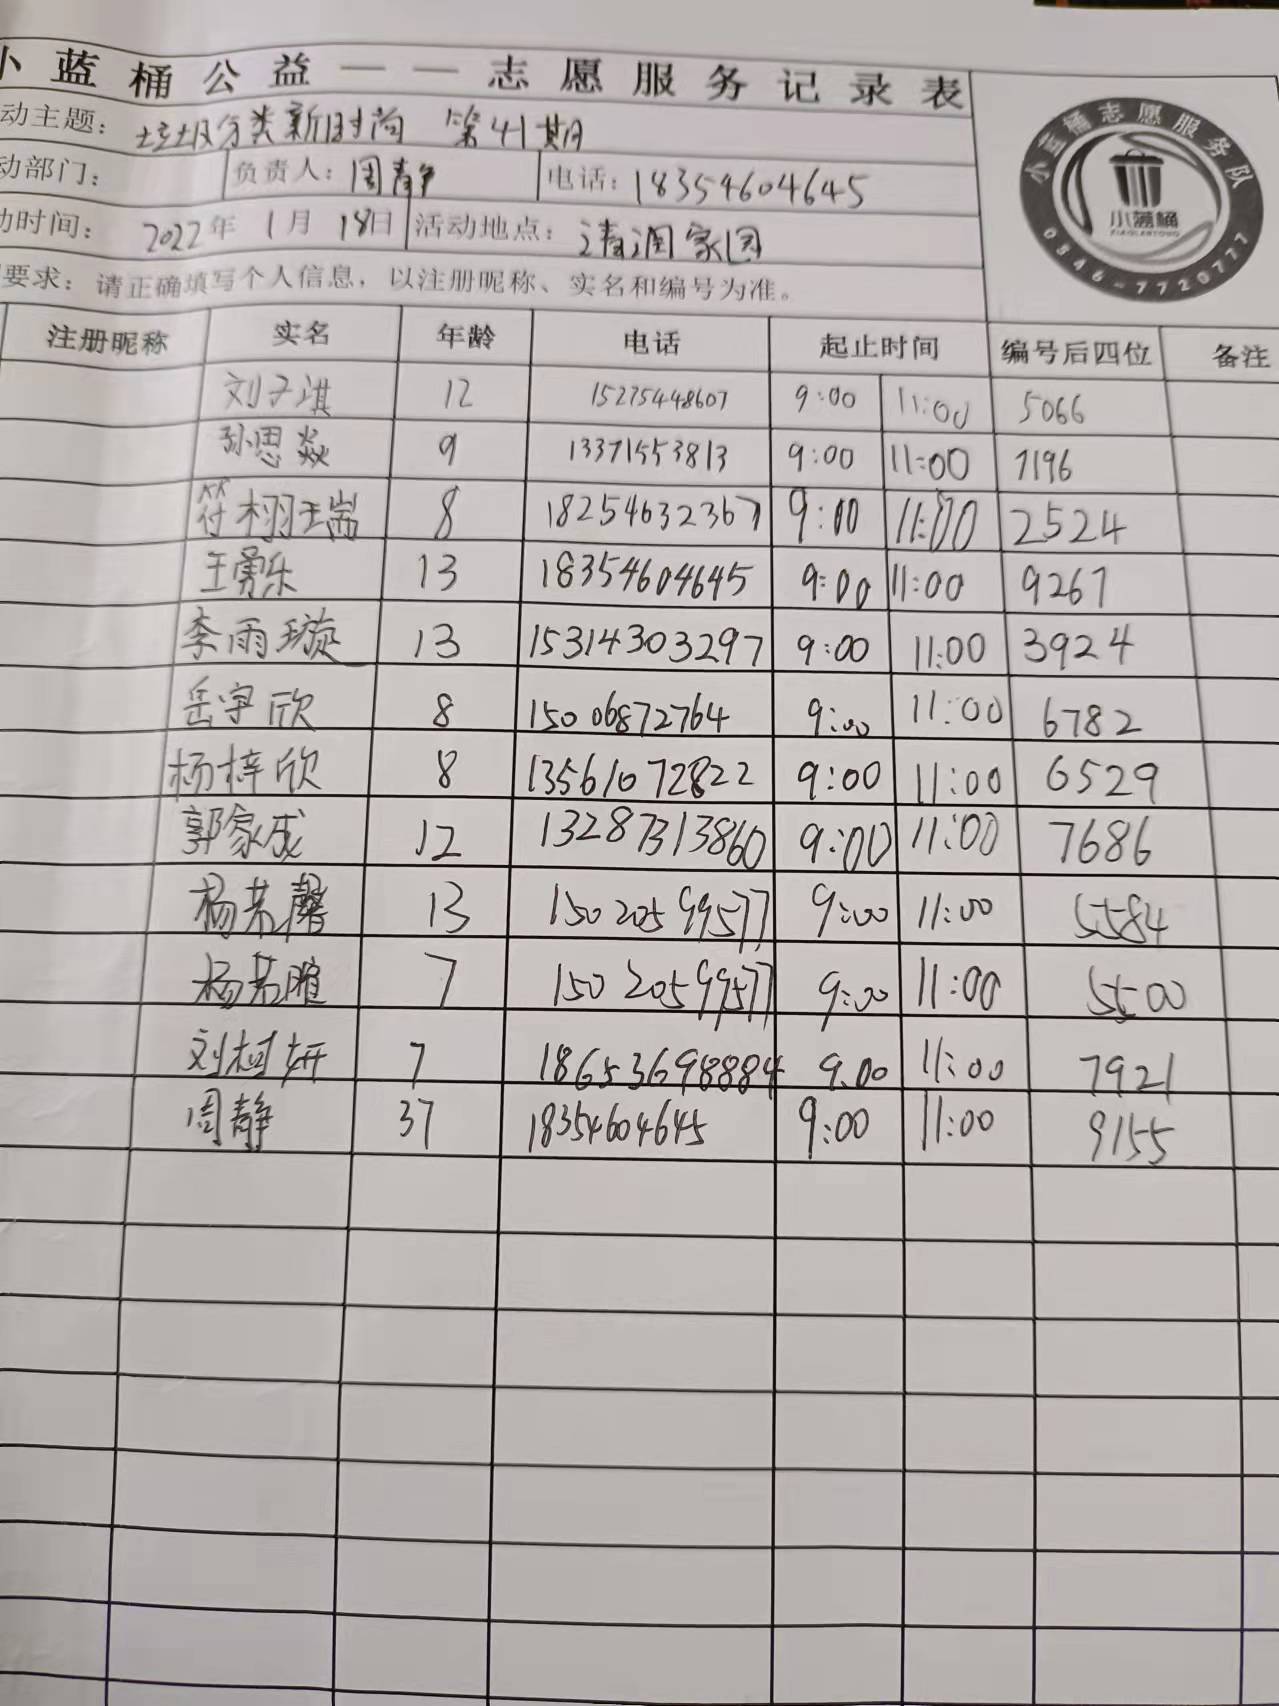 小蓝桶公益——志愿服务记录表
动主题：垃圾分类新时尚 第41期
动部门： 负责人：周静 电话：18354604645
动时间：2022年1月18日 活动地点：清润家园
要求：请正确填写个人信息，以注册昵称、实名和编号为准。
小蓝桶志愿服务队
小蓝桶
XIAOLANTONG
0546-7720777
注册昵称 实名 年龄 电话 起止时间 编号后四位 备注
刘子淇 12 15275448607 9:00 11:00 5066
孙思焱 9 13371553813 9:00 11:00 7196
符栩瑞 8 18254632367 9:00 11:00 2524
王勇乐 13 18354604645 9:00 11:00 9267
李雨璇 13 15314303297 9:00 11:00 3924
岳宇欣 8 15006872764 9:00 11:00 6782
杨梓欣 8 13561072822 9:00 11:00 6529
郭家成 12 13287313860 9:00 11:00 7686
杨若馨 13 15020599577 9:00 11:00 5584
杨若暄 7 15020599577 9:00 11:00 5500
刘柯妍 7 18653698884 9.00 11:00 7921
周静 37 18354604645 9:00 11:00 9155